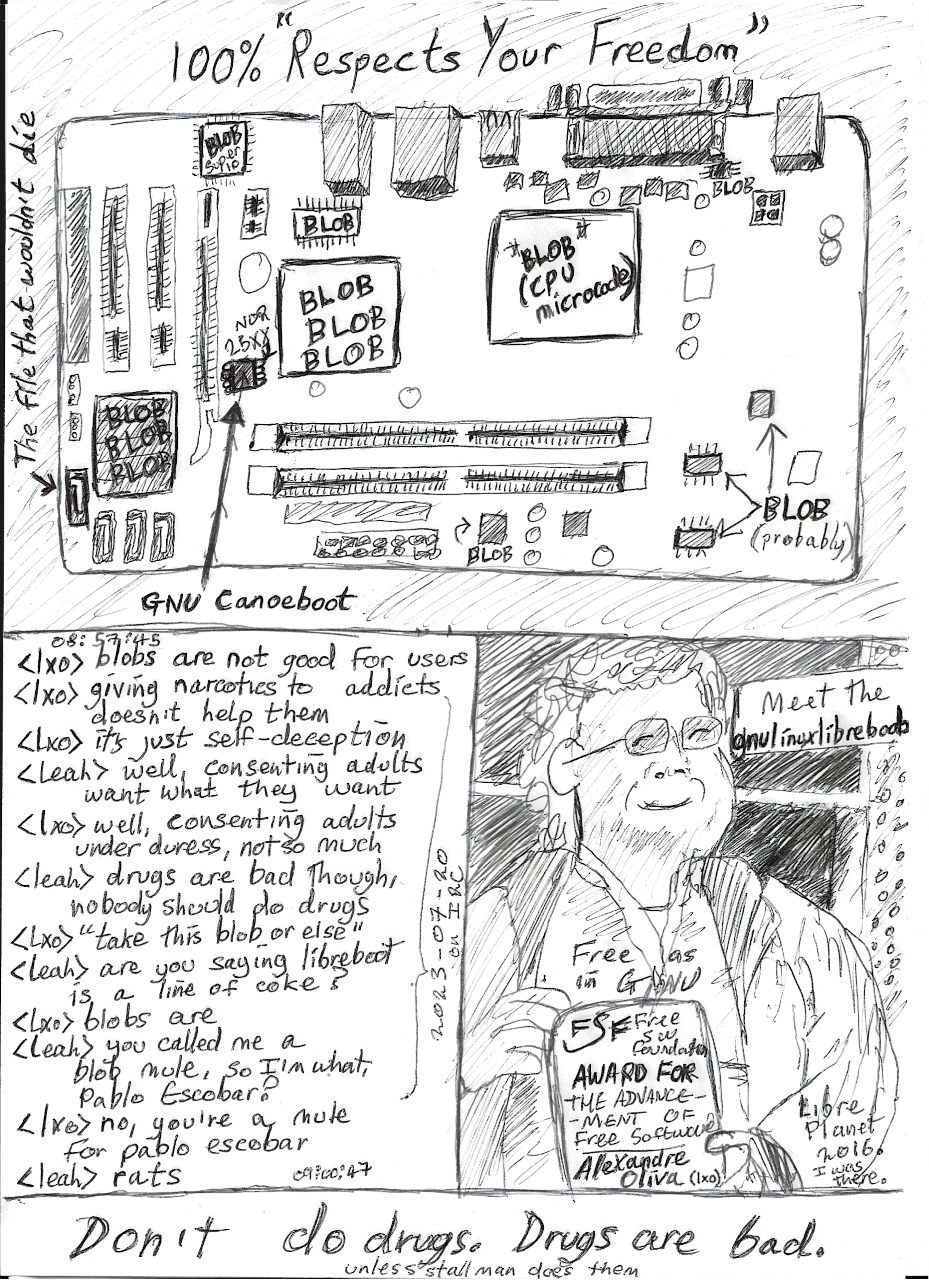 100% "Respects Your Freedom"
The file that wouldn't die
BLOB
Super
IO
BLOB
BLOB
BLOB
BLOB
BLOB
NOR
25XX
BLOB
(CPU
microcode)
BLOB
BLOB
BLOB
BLOB
BLOB
BLOB
(probably)
GNU Canoeboot
08:57:45
<lxo> blobs are not good for users
<lxo> giving narcotics to addicts
doesn't help them
<lxo> it's just self-deception
<leah> well, consenting adults
want what they want
<lxo> well, consenting adults
under duress, not so much
<leah> drugs are bad though,
nobody should do drugs
<lxo> "take this blob or else"
<leah> are you saying libreboot
is a line of coke?
<lxo> blobs are
<leah> you called me a
blob mule, so I'm what,
Pablo Escobar?
<lxo> no, you're a mule
for pablo escobar
<leah> rats
09:00:47
2023-07-20
on IRC
Meet the
gnulinuxlibreboob
Free as
in GNU
FSF Free
SW
Foundation
AWARD FOR
THE ADVANCE-
-MENT OF
Free Software
Alexandre
Oliva (lxo)
Libre
Planet
2016.
I was
there.
Don't do drugs. Drugs are bad.
unless stallman does them